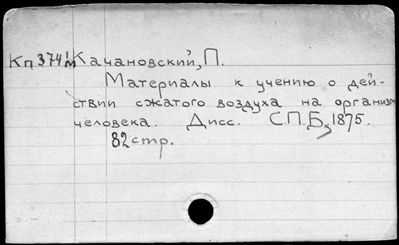 Кп 374/м Качановский, П.
Материалы к учению о дей-
ствии сжатого воздуха на организм
человека. Дисс. С.П.Б, 1875.
82 стр.